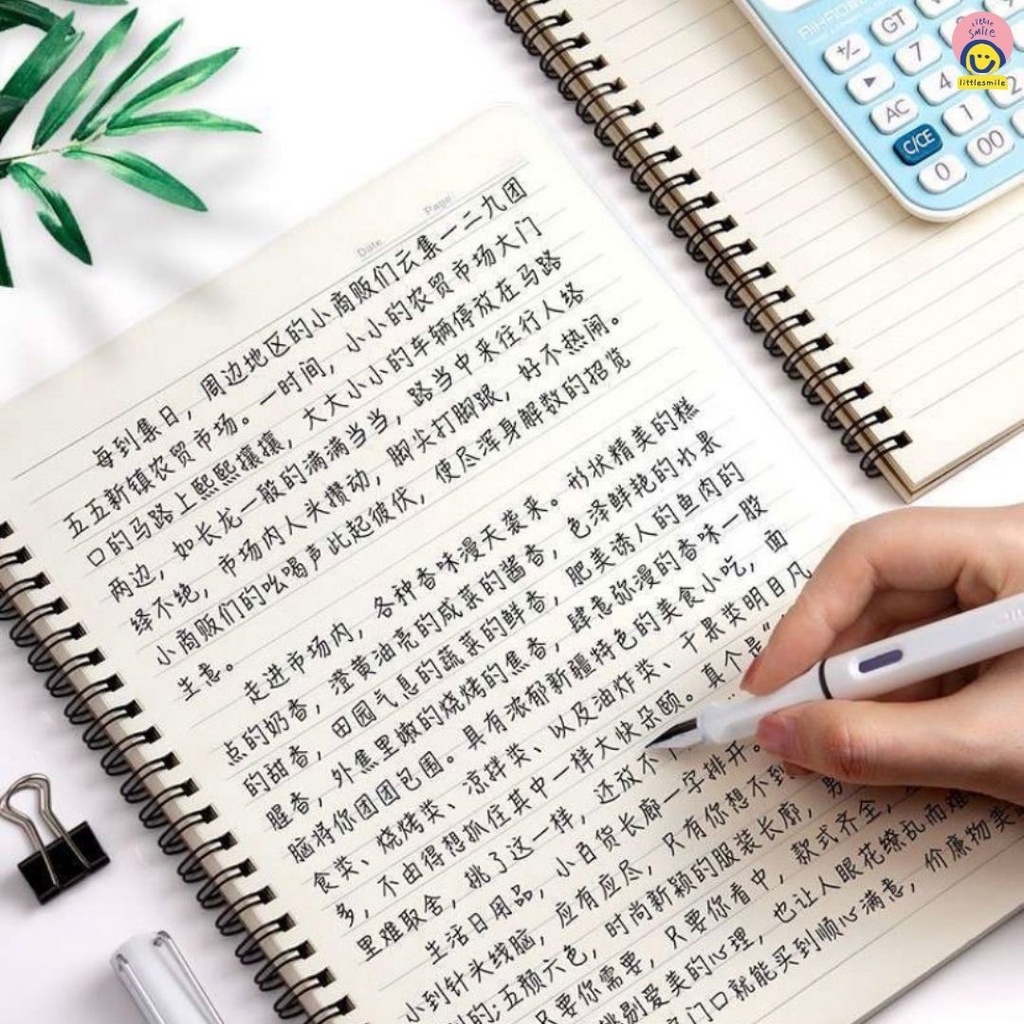 little smile
littlesmile
AIHAO
+/- GT
▶ 7
AC 4
C/CE 1 2
0 00
Date Page
每到集日，周边地区的小商贩们云集一二九团
五五新镇农贸市场。一时间，小小的农贸市场大门
口的马路上熙熙攘攘，大大小小的车辆停放在马路
两边，如长龙一般的满满当当，路当中来往行人络
绎不绝，市场内人头攒动，脚尖打脚跟，好不热闹。
小商贩们的吆喝声此起彼伏，使尽浑身解数的招览
生意。
走进市场内，各种香味漫天袭来。形状精美的糕
点的奶香，澄黄油亮的咸菜的酱香，色泽鲜艳的水果
的甜香，田园气息的蔬菜的鲜香，肥美诱人的鱼肉的
腥香，外焦里嫩的烧烤的焦香，肆意弥漫的香味一股
脑将你团团包围。具有浓郁新疆特色的美食小吃，面
食类、烧烤类、凉拌类、以及油炸类、干果类明目凡
多，不由得想抓住其中一样大快朵颐。真个是“
里难取舍，挑了这一样，还放不
生活日用品，小百货长廊一字排开。
小到针头线脑，应有应尽，只有你想不到
的;五颜六色，时尚新颖的服装长廊，男
只要你需要，只要你看中，款式齐全，
挑剔爱美的心理，也让人眼花缭乱而难
门口就能买到顺心满意，价廉物美